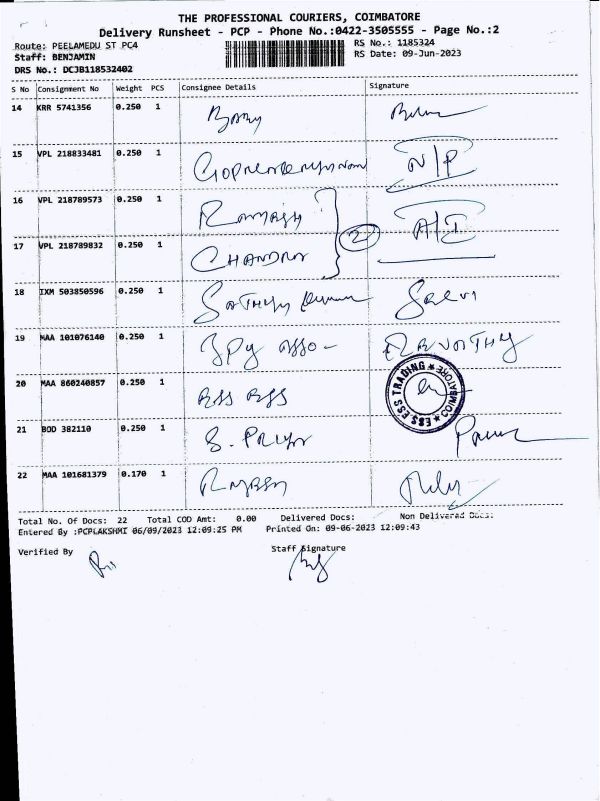 THE PROFESSIONAL COURIERS, COIMBATORE
Delivery Runsheet - PCP - Phone No.:0422-3505555 - Page No.:2
Route: PEELAMEDU ST PC4
RS No.: 1185324
Staff: BENJAMIN
RS Date: 09-Jun-2023
DRS No.: DCJB118532402
S No Consignment No Weight PCS Consignee Details Signature
14 KRR 5741356 0.250 1
15 VPL 218833481 0.250 1 N/P
16 VPL 218789573 0.250 1 RAMASH A/I
2
17 VPL 218789832 0.250 1 CHANDRA
18 IXM 503850596 0.250 1 Selvi
19 MAA 101076140 0.250 1
20 MAA 860240857 0.250 1 ESS TRADING COIMBATORE
21 BOD 382110 0.250 1 S. PRIYA
22 MAA 101681379 0.170 1
Total No. Of Docs: 22 Total COD Amt: 0.00 Delivered Docs: Non Delivered Docs:
Entered By :PCPLAKSHMI 06/09/2023 12:09:25 PM Printed On: 09-06-2023 12:09:43
Verified By Staff Signature